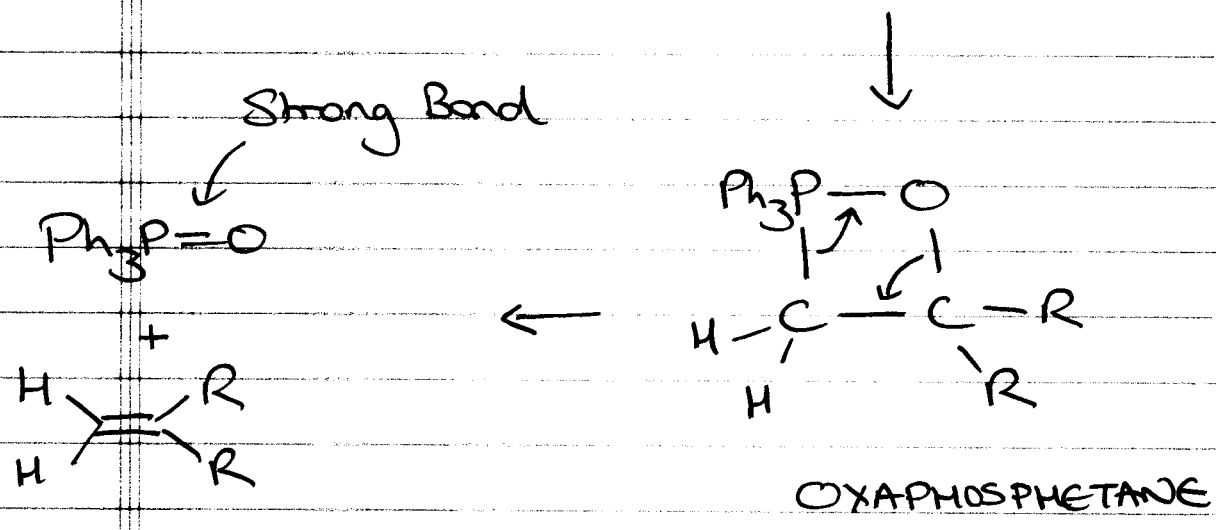 Strong Bond
Ph3P=O
+
H R
H R
Ph3P—O
H—C—C—R
H R
OXAPHOSPHETANE